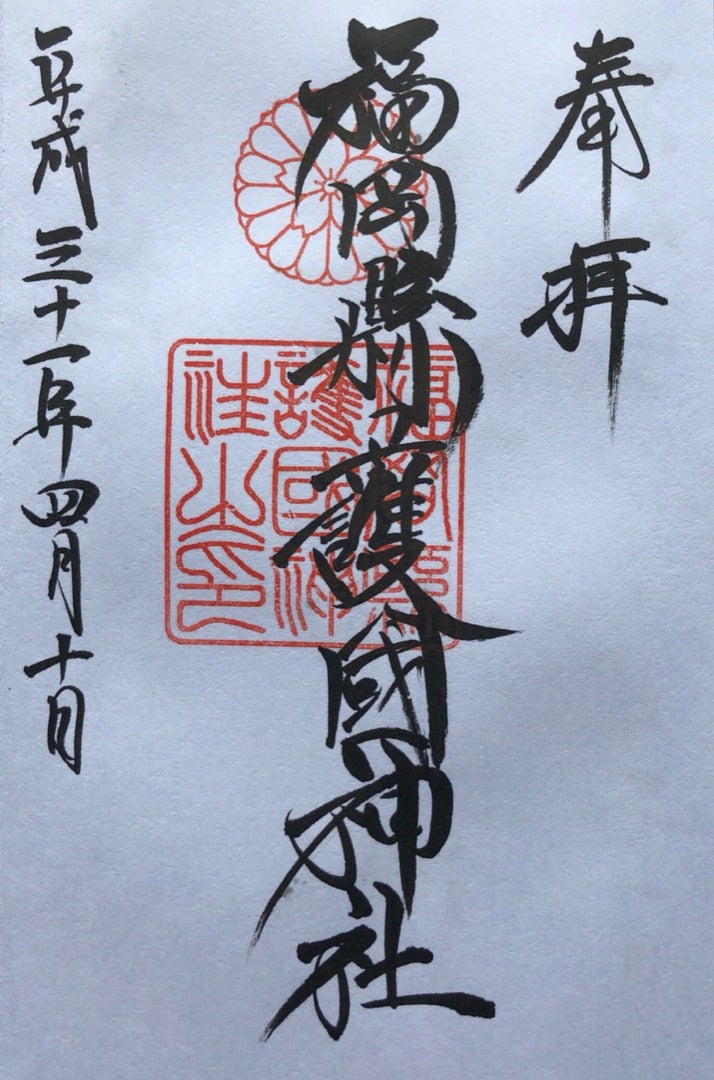 奉拝
福岡縣護國神社
福岡縣護國神社之印
平成三十一年四月十日